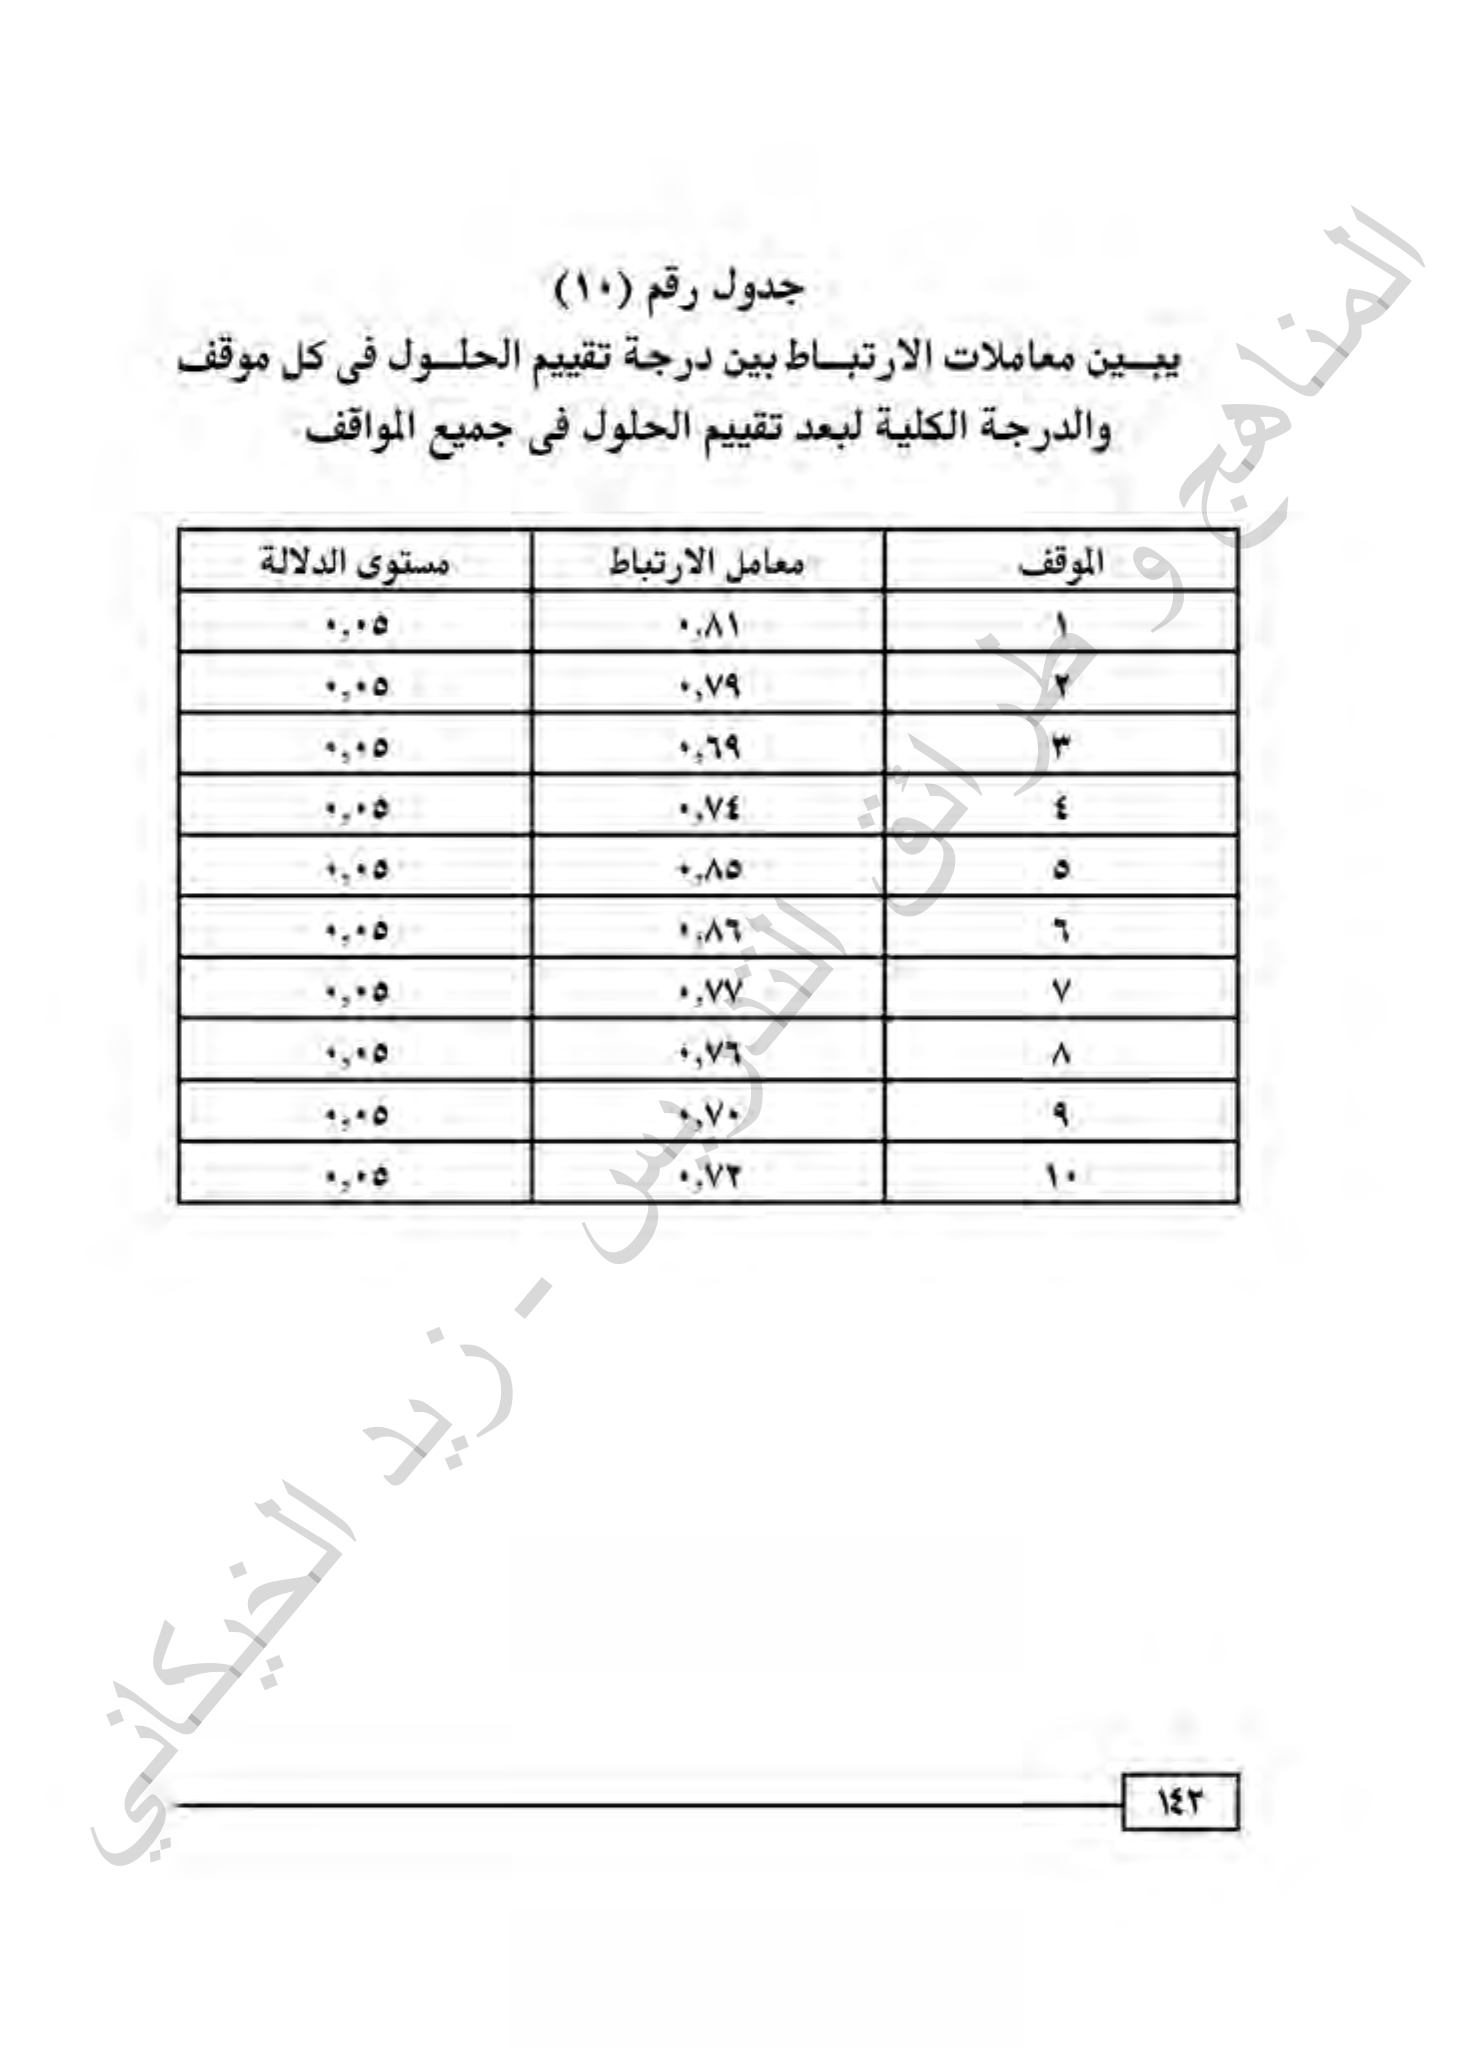 جدول رقم (١٠)
يبـــين معاملات الارتبـــاط بين درجة تقييم الحلـــول فى كل موقف
والدرجة الكلية لبعد تقييم الحلول فى جميع المواقف
الموقف معامل الارتباط مستوى الدلالة
١ ٠,٨١ ٠,٠٥
٢ ٠,٧٩ ٠,٠٥
٣ ٠,٦٩ ٠,٠٥
٤ ٠,٧٤ ٠,٠٥
٥ ٠,٨٥ ٠,٠٥
٦ ٠,٨٦ ٠,٠٥
٧ ٠,٧٧ ٠,٠٥
٨ ٠,٧٦ ٠,٠٥
٩ ٠,٧٠ ٠,٠٥
١٠ ٠,٧٢ ٠,٠٥
المناهج و طرائق التدريس - زيد الخيكاني
١٤٢